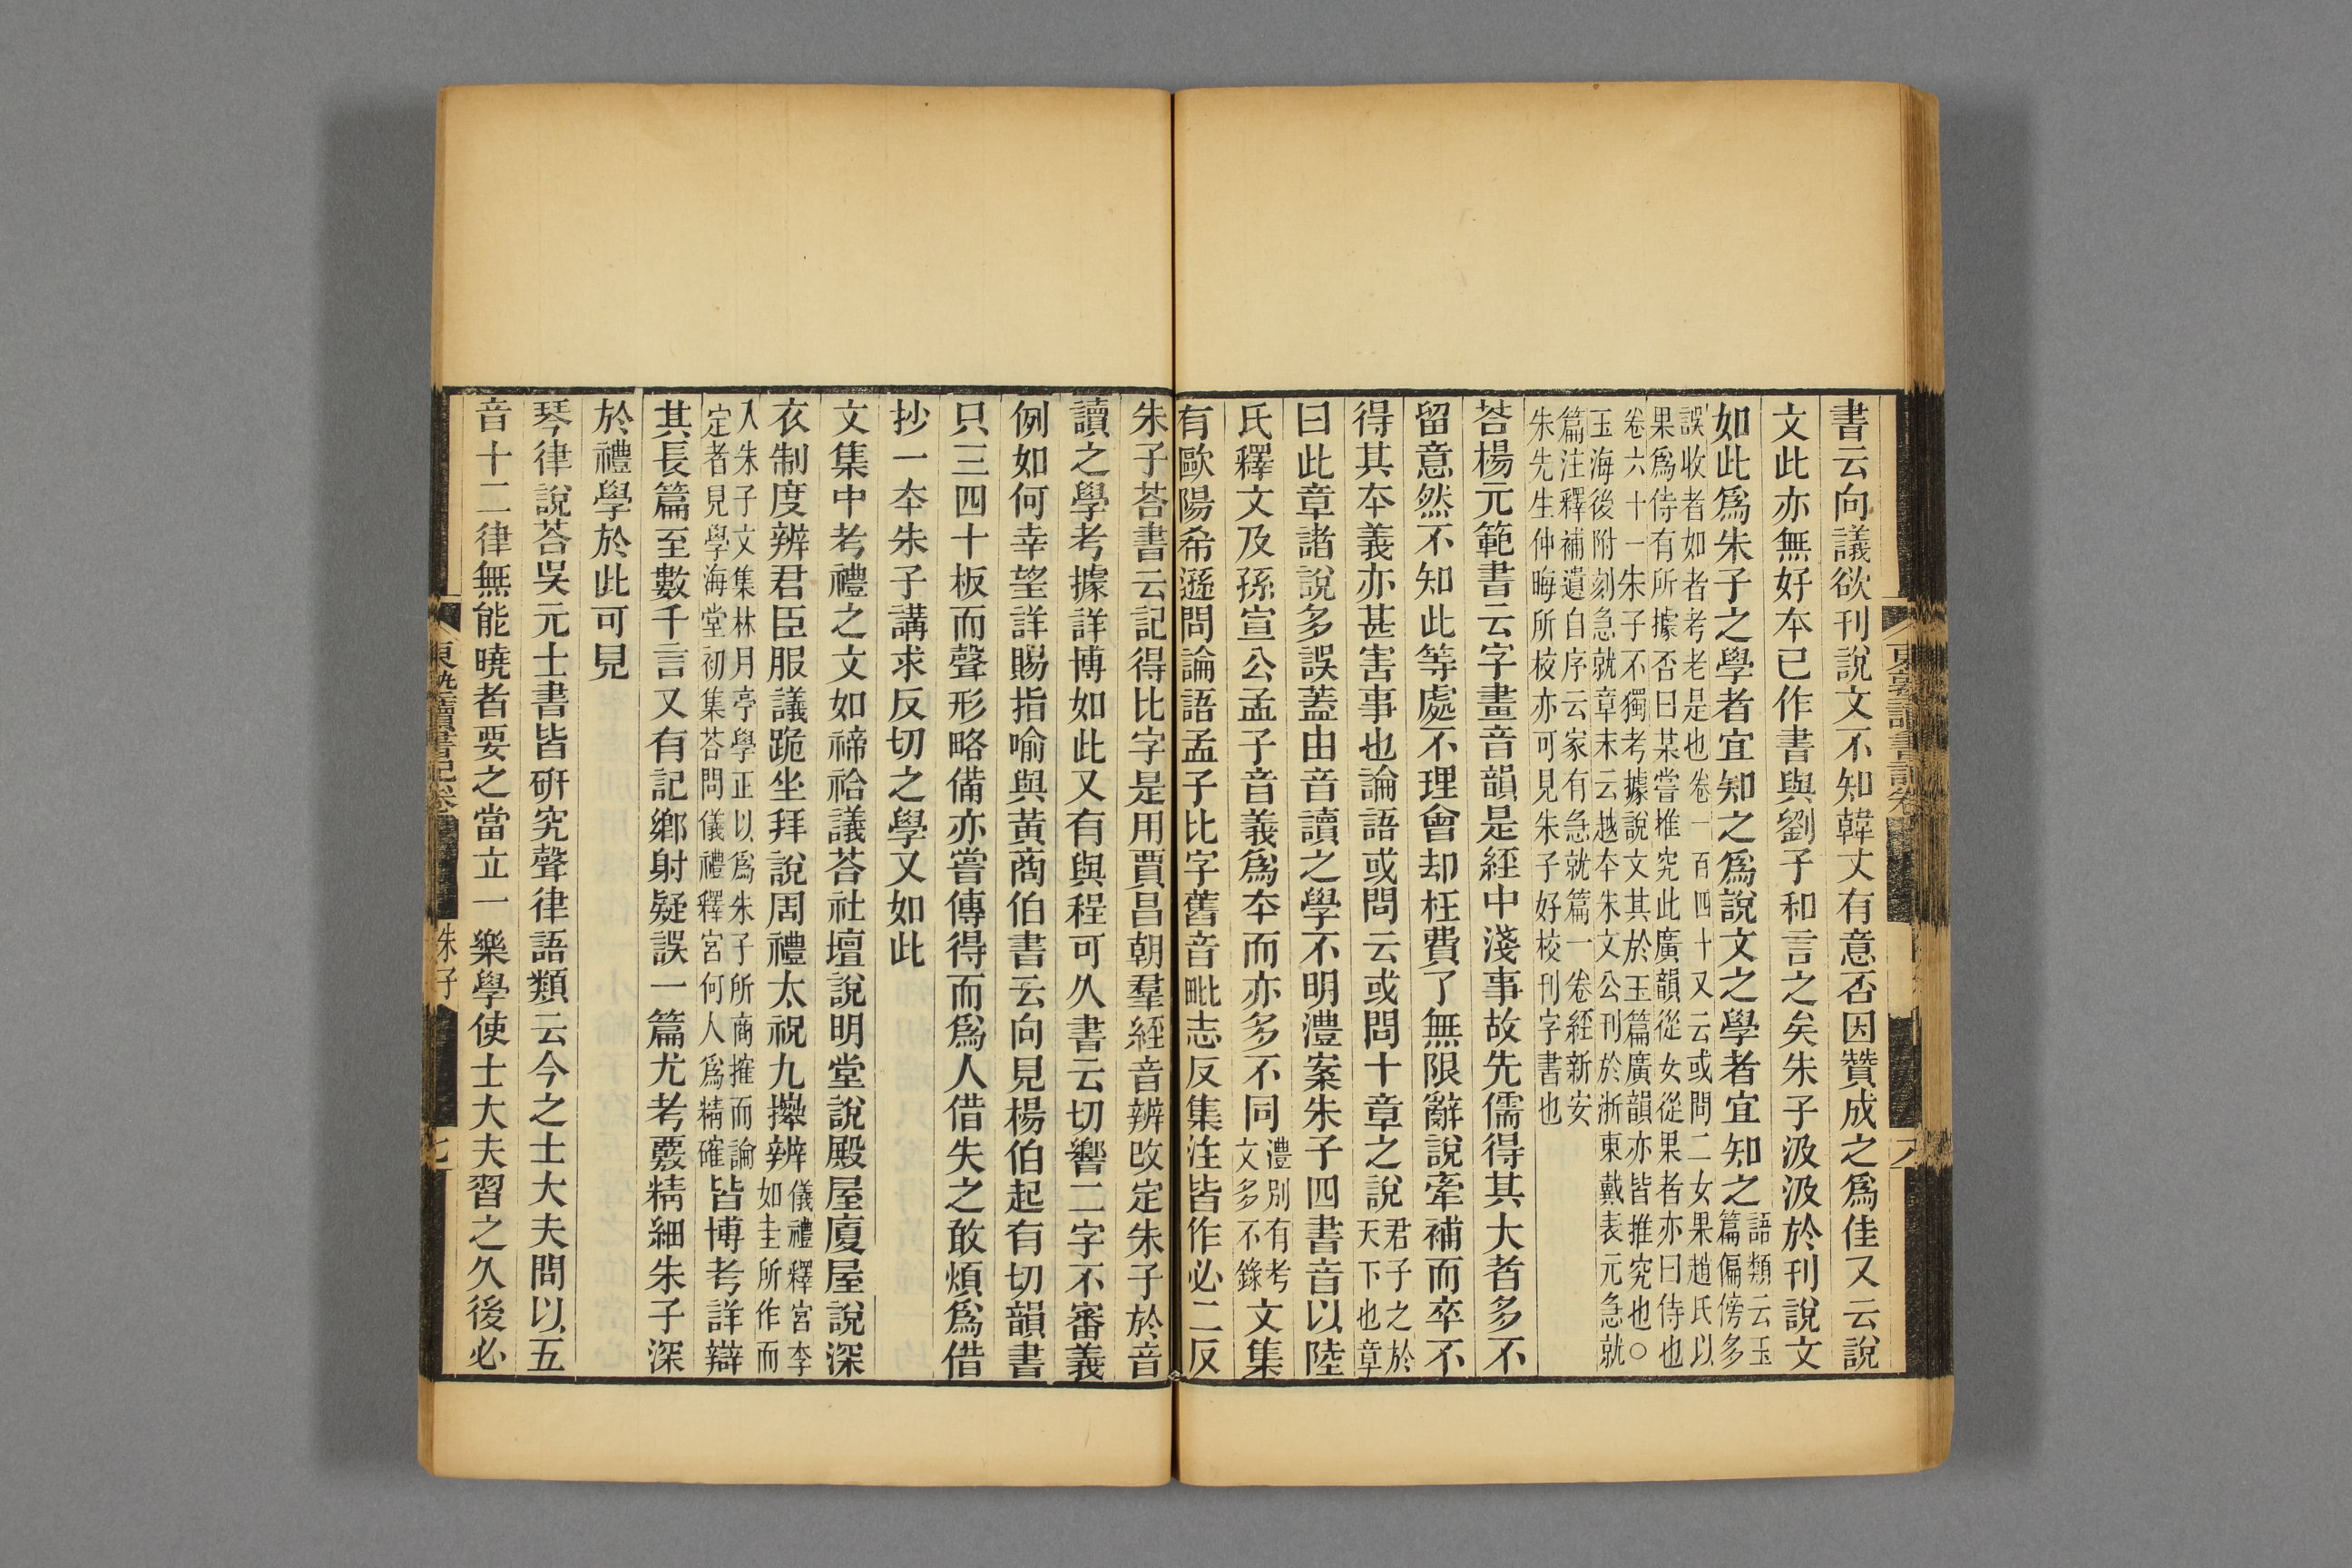 書云向議欲刊說文不知韓丈有意否因贊成之爲佳又云說
文此亦無好本已作書與劉子和言之矣朱子汲汲於刊說文
如此爲朱子之學者宜知之爲說文之學者宜知之語類云玉篇偏傍多
誤收者如者考老是也卷一百四十又云或問二女果趙氏以
果爲侍有所據否曰某嘗推究此廣韻從女從果者亦曰侍也
卷六十一朱子不獨考據說文其於玉篇廣韻亦皆推究也○
玉海後附刻急就章末云越本朱文公刊於浙東戴表元急就
篇注釋補遺自序云家有急就篇一卷經新安
朱先生仲晦所校亦可見朱子好校刊字書也
荅楊元範書云字畫音韻是經中淺事故先儒得其大者多不
留意然不知此等處不理會却枉費了無限辭說牽補而卒不
得其本義亦甚害事也論語或問云或問十章之說君子之於天下也章
曰此章諸說多誤蓋由音讀之學不明澧案朱子四書音以陸
氏釋文及孫宣公孟子音義爲本而亦多不同澧別有考文多不錄文集
有歐陽希遜問論語孟子比字舊音毗志反集注皆作必二反
朱子荅書云記得比字是用賈昌朝羣經音辨改定朱子於音
讀之學考據詳博如此又有與程可久書云切響二字不審義
例如何幸望詳賜指喻與黃商伯書云向見楊伯起有切韻書
只三四十板而聲形略備亦嘗傳得而爲人借失之敢煩爲借
抄一本朱子講求反切之學又如此
文集中考禮之文如禘祫議荅社壇說明堂說殿屋廈屋說深
衣制度辨君臣服議跪坐拜說周禮太祝九㩲辨儀禮釋宮李如圭所作而
入朱子文集林月亭學正以爲朱子所商搉而論
定者見學海堂初集荅問儀禮釋宮何人爲精確皆博考詳辯
其長篇至數千言又有記鄉射疑誤一篇尤考覈精細朱子深
於禮學於此可見
琴律說荅吳元士書皆硏究聲律語類云今之士大夫問以五
音十二律無能曉者要之當立一樂學使士大夫習之久後必
東塾讀書記卷
朱子
七